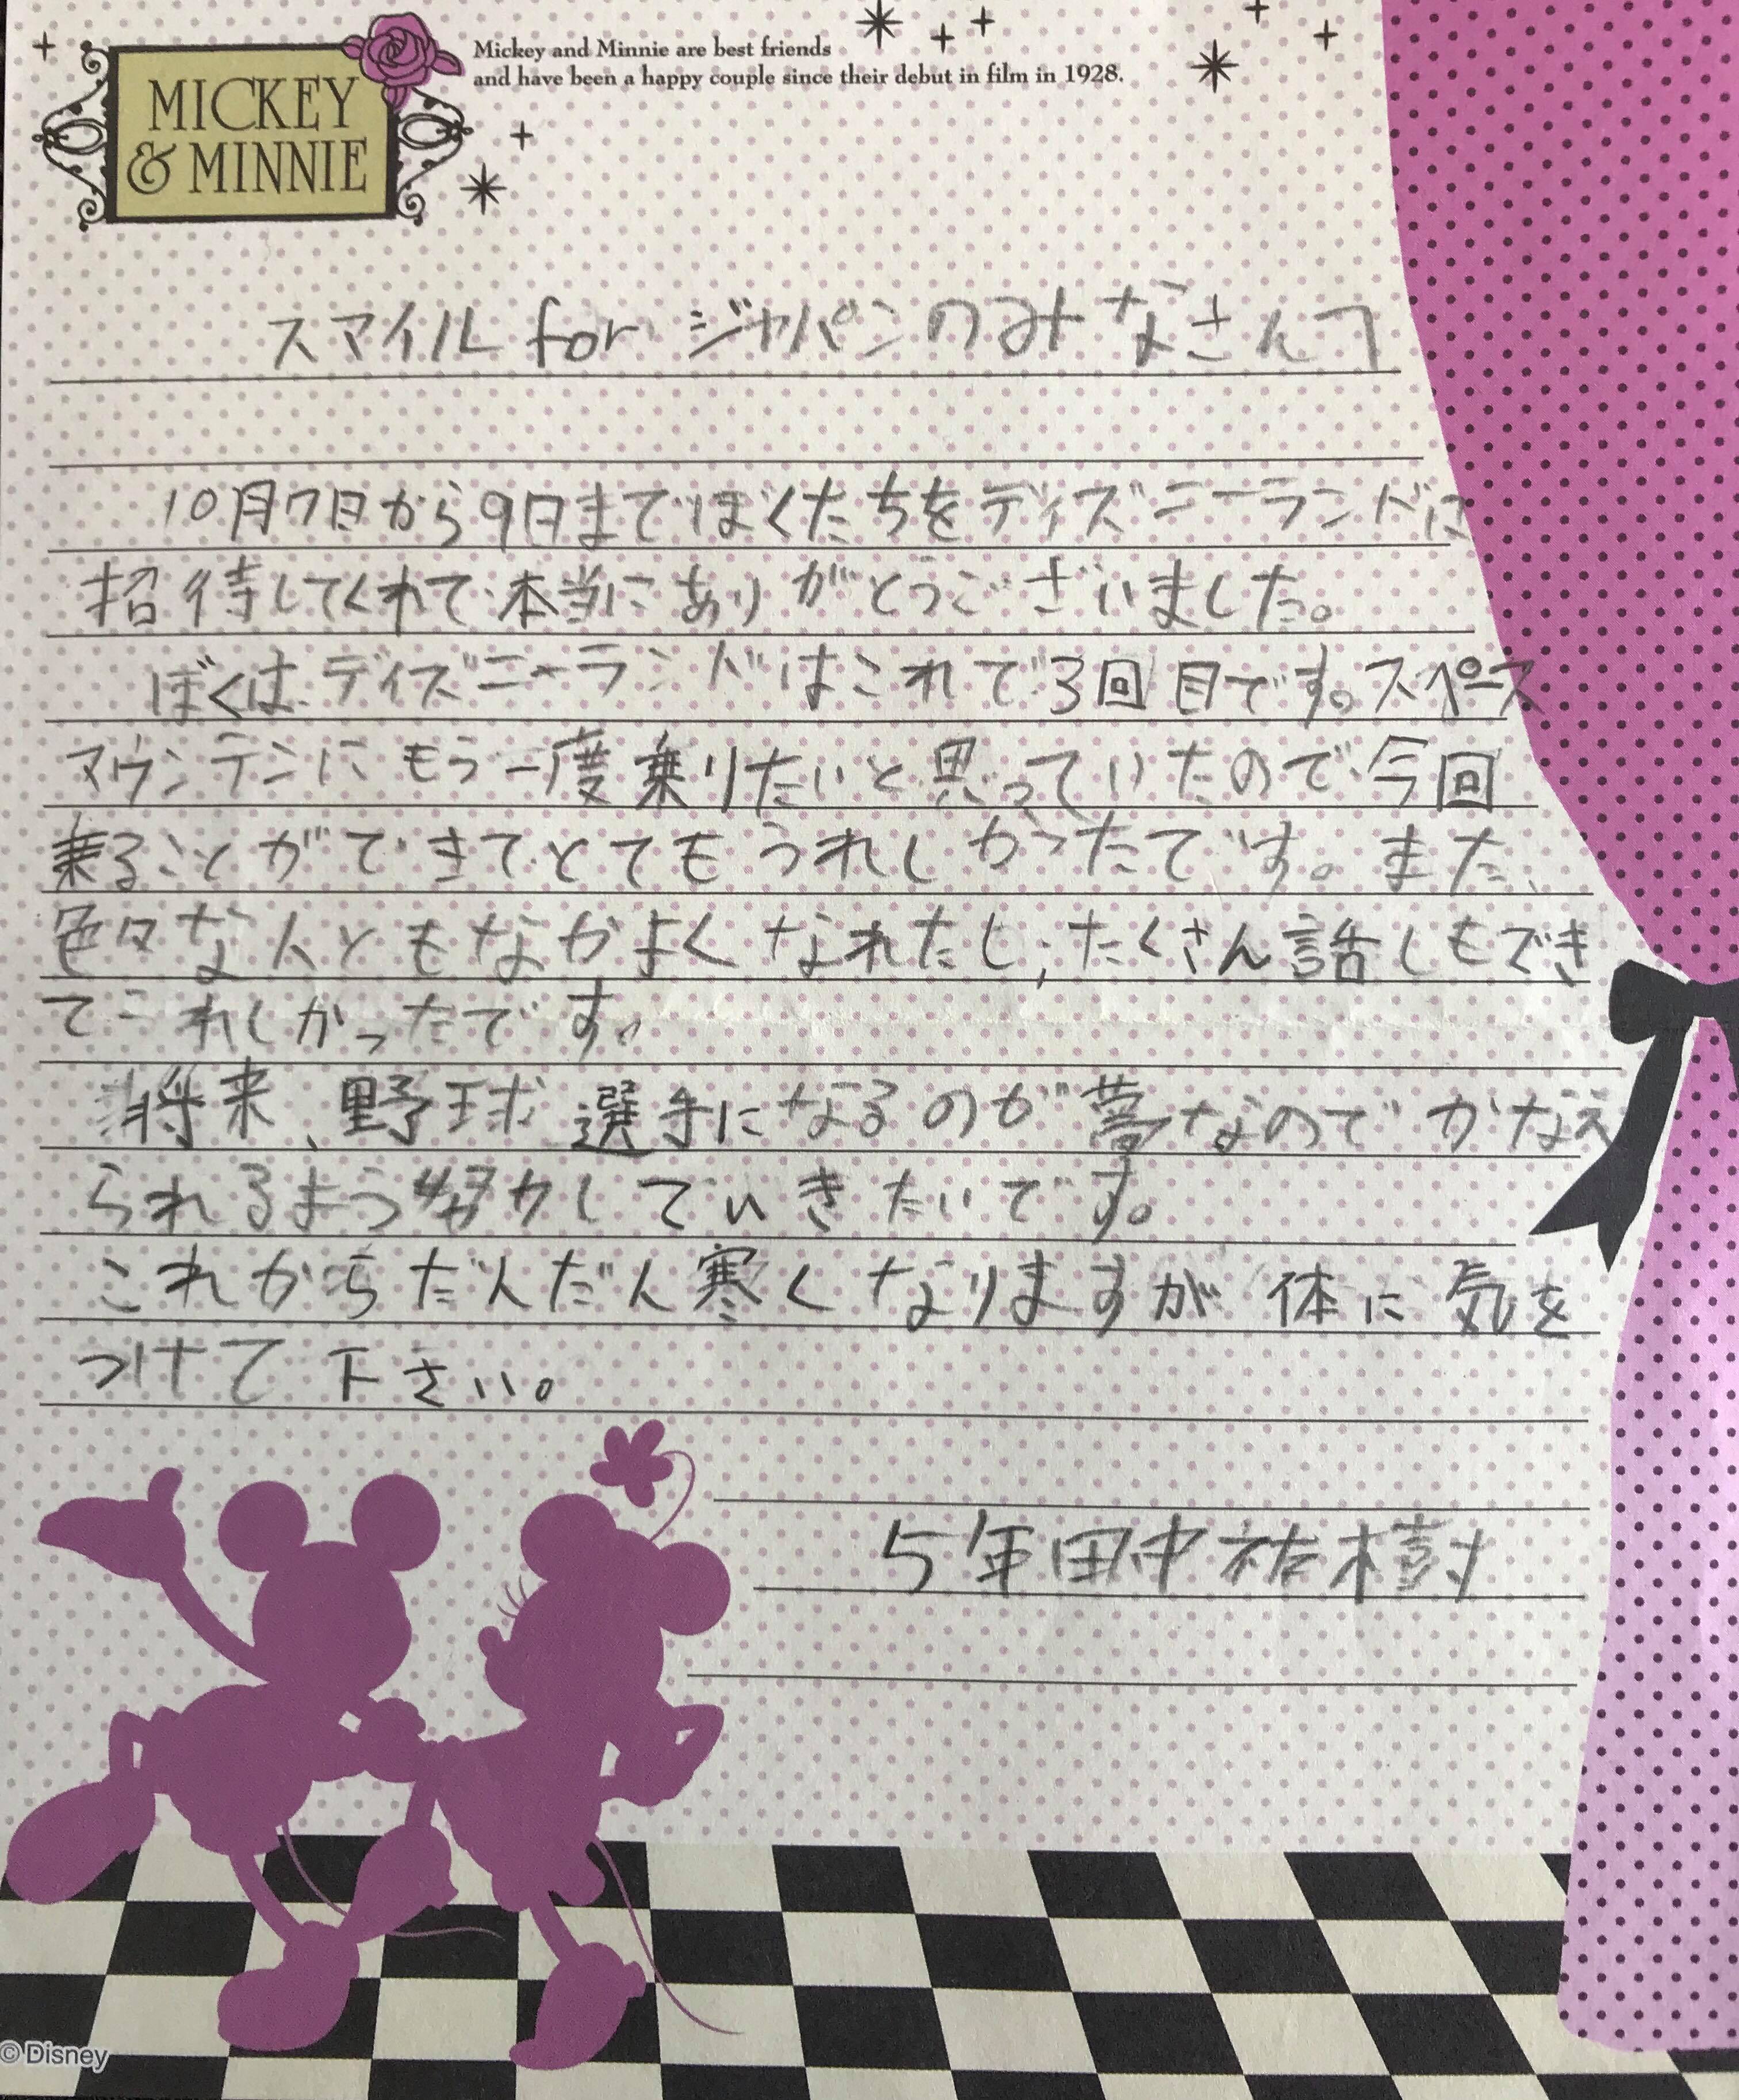 MICKEY
& MINNIE
Mickey and Minnie are best friends
and have been a happy couple since their debut in film in 1928.
スマイル for ジャパンのみなさんへ
10月7日から9日までぼくたちをディズニーランドに
招待してくれて本当にありがとうございました。
ぼくはディズニーランドはこれで3回目です。スペース
マウンテンにもう一度乗りたいと思っていたので今回
乗ることができてとてもうれしかったです。また、
色々な人ともなかよくなれたし、たくさん話しもでき
てうれしかったです。
将来、野球選手になるのが夢なのでかなえ
られるよう努力していきたいです。
これからだんだん寒くなりますが体に気を
つけて下さい。
5年田中祐樹
© Disney